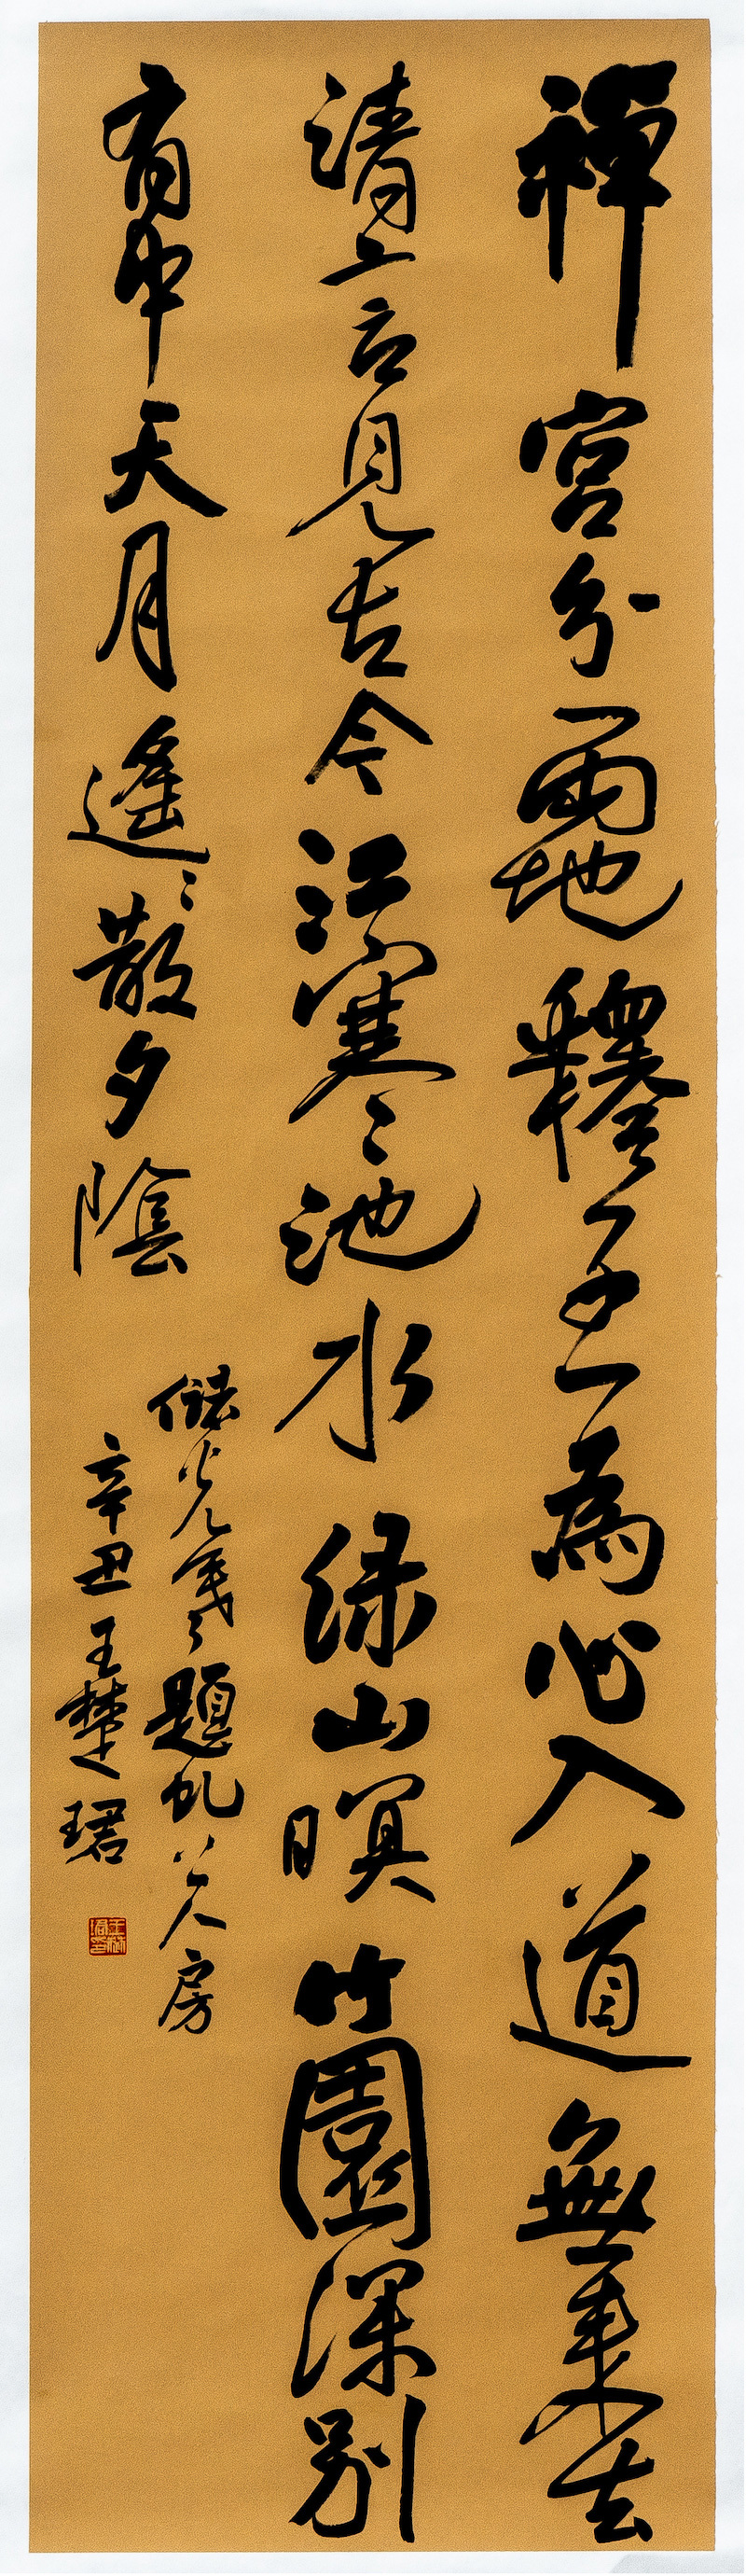 禪宮分兩地釋子一為心入道無來去
清言見古今江寒池水绿山暝竹園深別
有中天月遙〻散夕陰
儲光羲題虬上人房
辛丑王楚珺